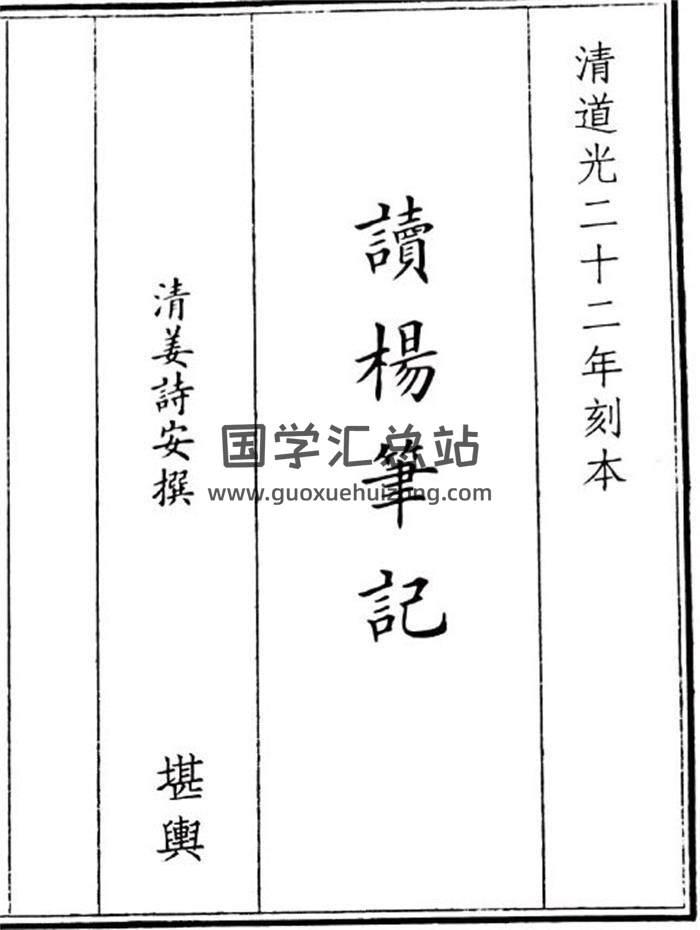 清道光二十二年刻本
讀楊筆記
清姜詩安撰
堪輿
国学汇总站
www.guoxuehuizong.com